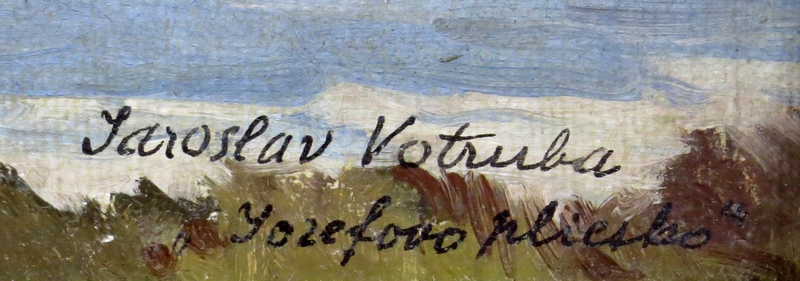 Jaroslav Votruba
„Jozefovo pliesko"